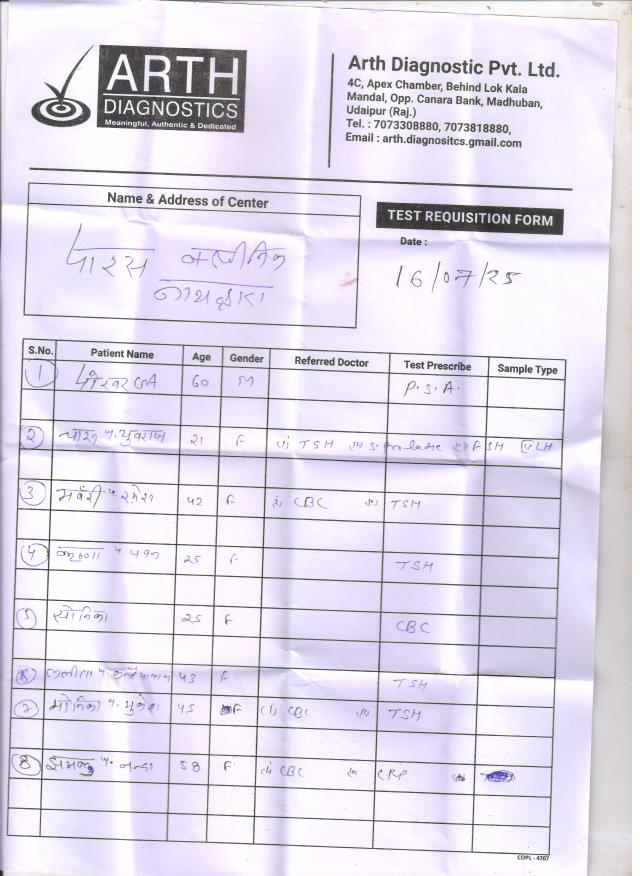 ARTH
DIAGNOSTICS
Meaningful, Authentic & Dedicated
Arth Diagnostic Pvt. Ltd.
4C, Apex Chamber, Behind Lok Kala
Mandal, Opp. Canara Bank, Madhuban,
Udaipur (Raj.)
Tel. : 7073308880, 7073818880,
Email : arth.diagnositcs.gmail.com
Name & Address of Center
पारस क्लीनिक
नाथद्वारा
TEST REQUISITION FORM
Date :
16/07/25
S.No. Patient Name Age Gender Referred Doctor Test Prescribe Sample Type
1 60 M P.S.A.
2 21 F (i) TSH FSH LH
3 42 F (i) CBC (ii) TSH
4 कृष्णा 25 F TSH
5 सोनिका 25 F CBC
6 ललीता 43 F TSH
7 मोनिका प. मुकेश 45 F (i) CBC (ii) TSH
8 58 F (i) CBC (ii) CRP
COPL - 4707